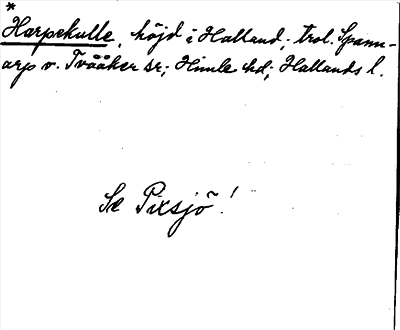 *
Harpekulle, höjd i Halland; trol. Spann-
arp v. Tvååker sn; Himle hd; Hallands l.
Se Pixsjö!